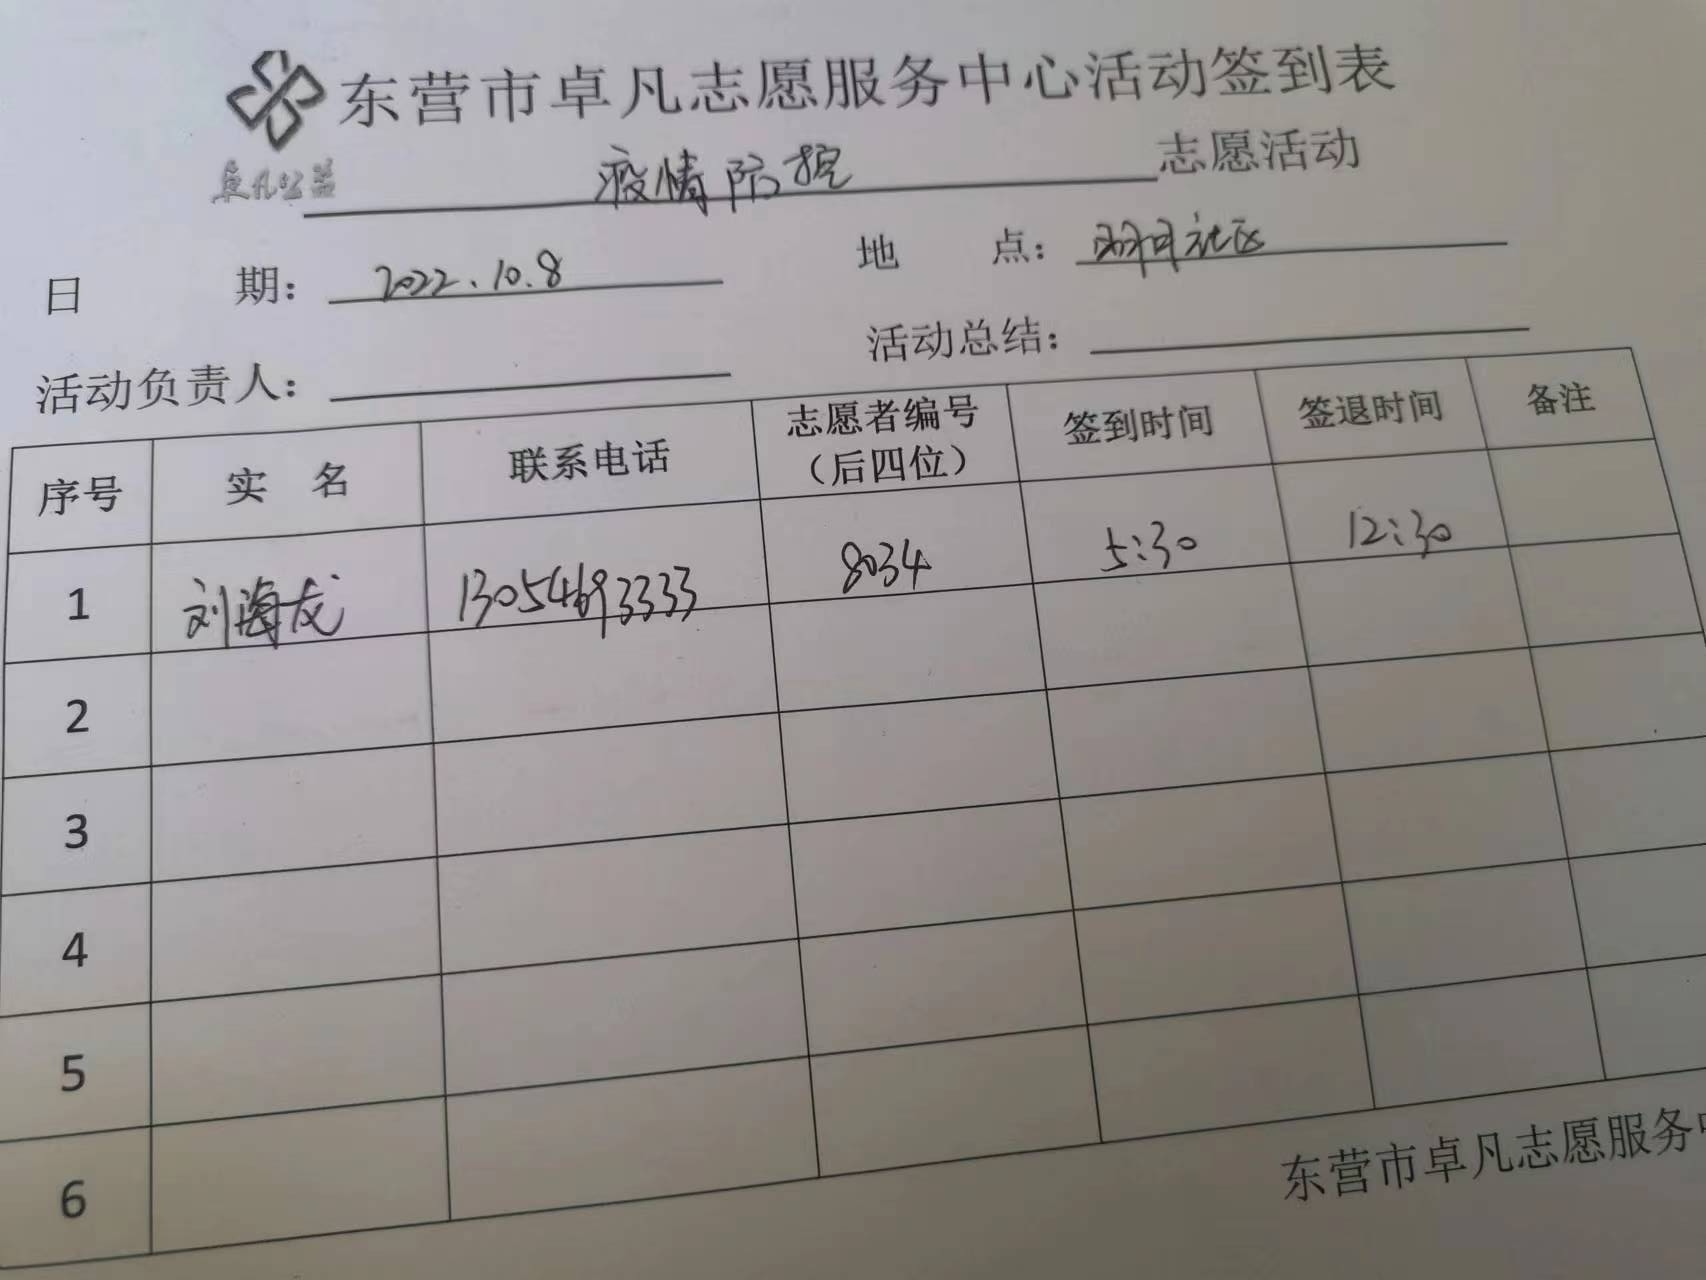 东营市卓凡志愿服务中心活动签到表
卓凡公益
疫情防控 志愿活动
日 期： 2022.10.8 地 点： 社区
活动负责人： 活动总结：
序号 实 名 联系电话 志愿者编号（后四位） 签到时间 签退时间 备注
1 刘海龙 13054693333 8034 5:30 12:30
2
3
4
5
6
东营市卓凡志愿服务